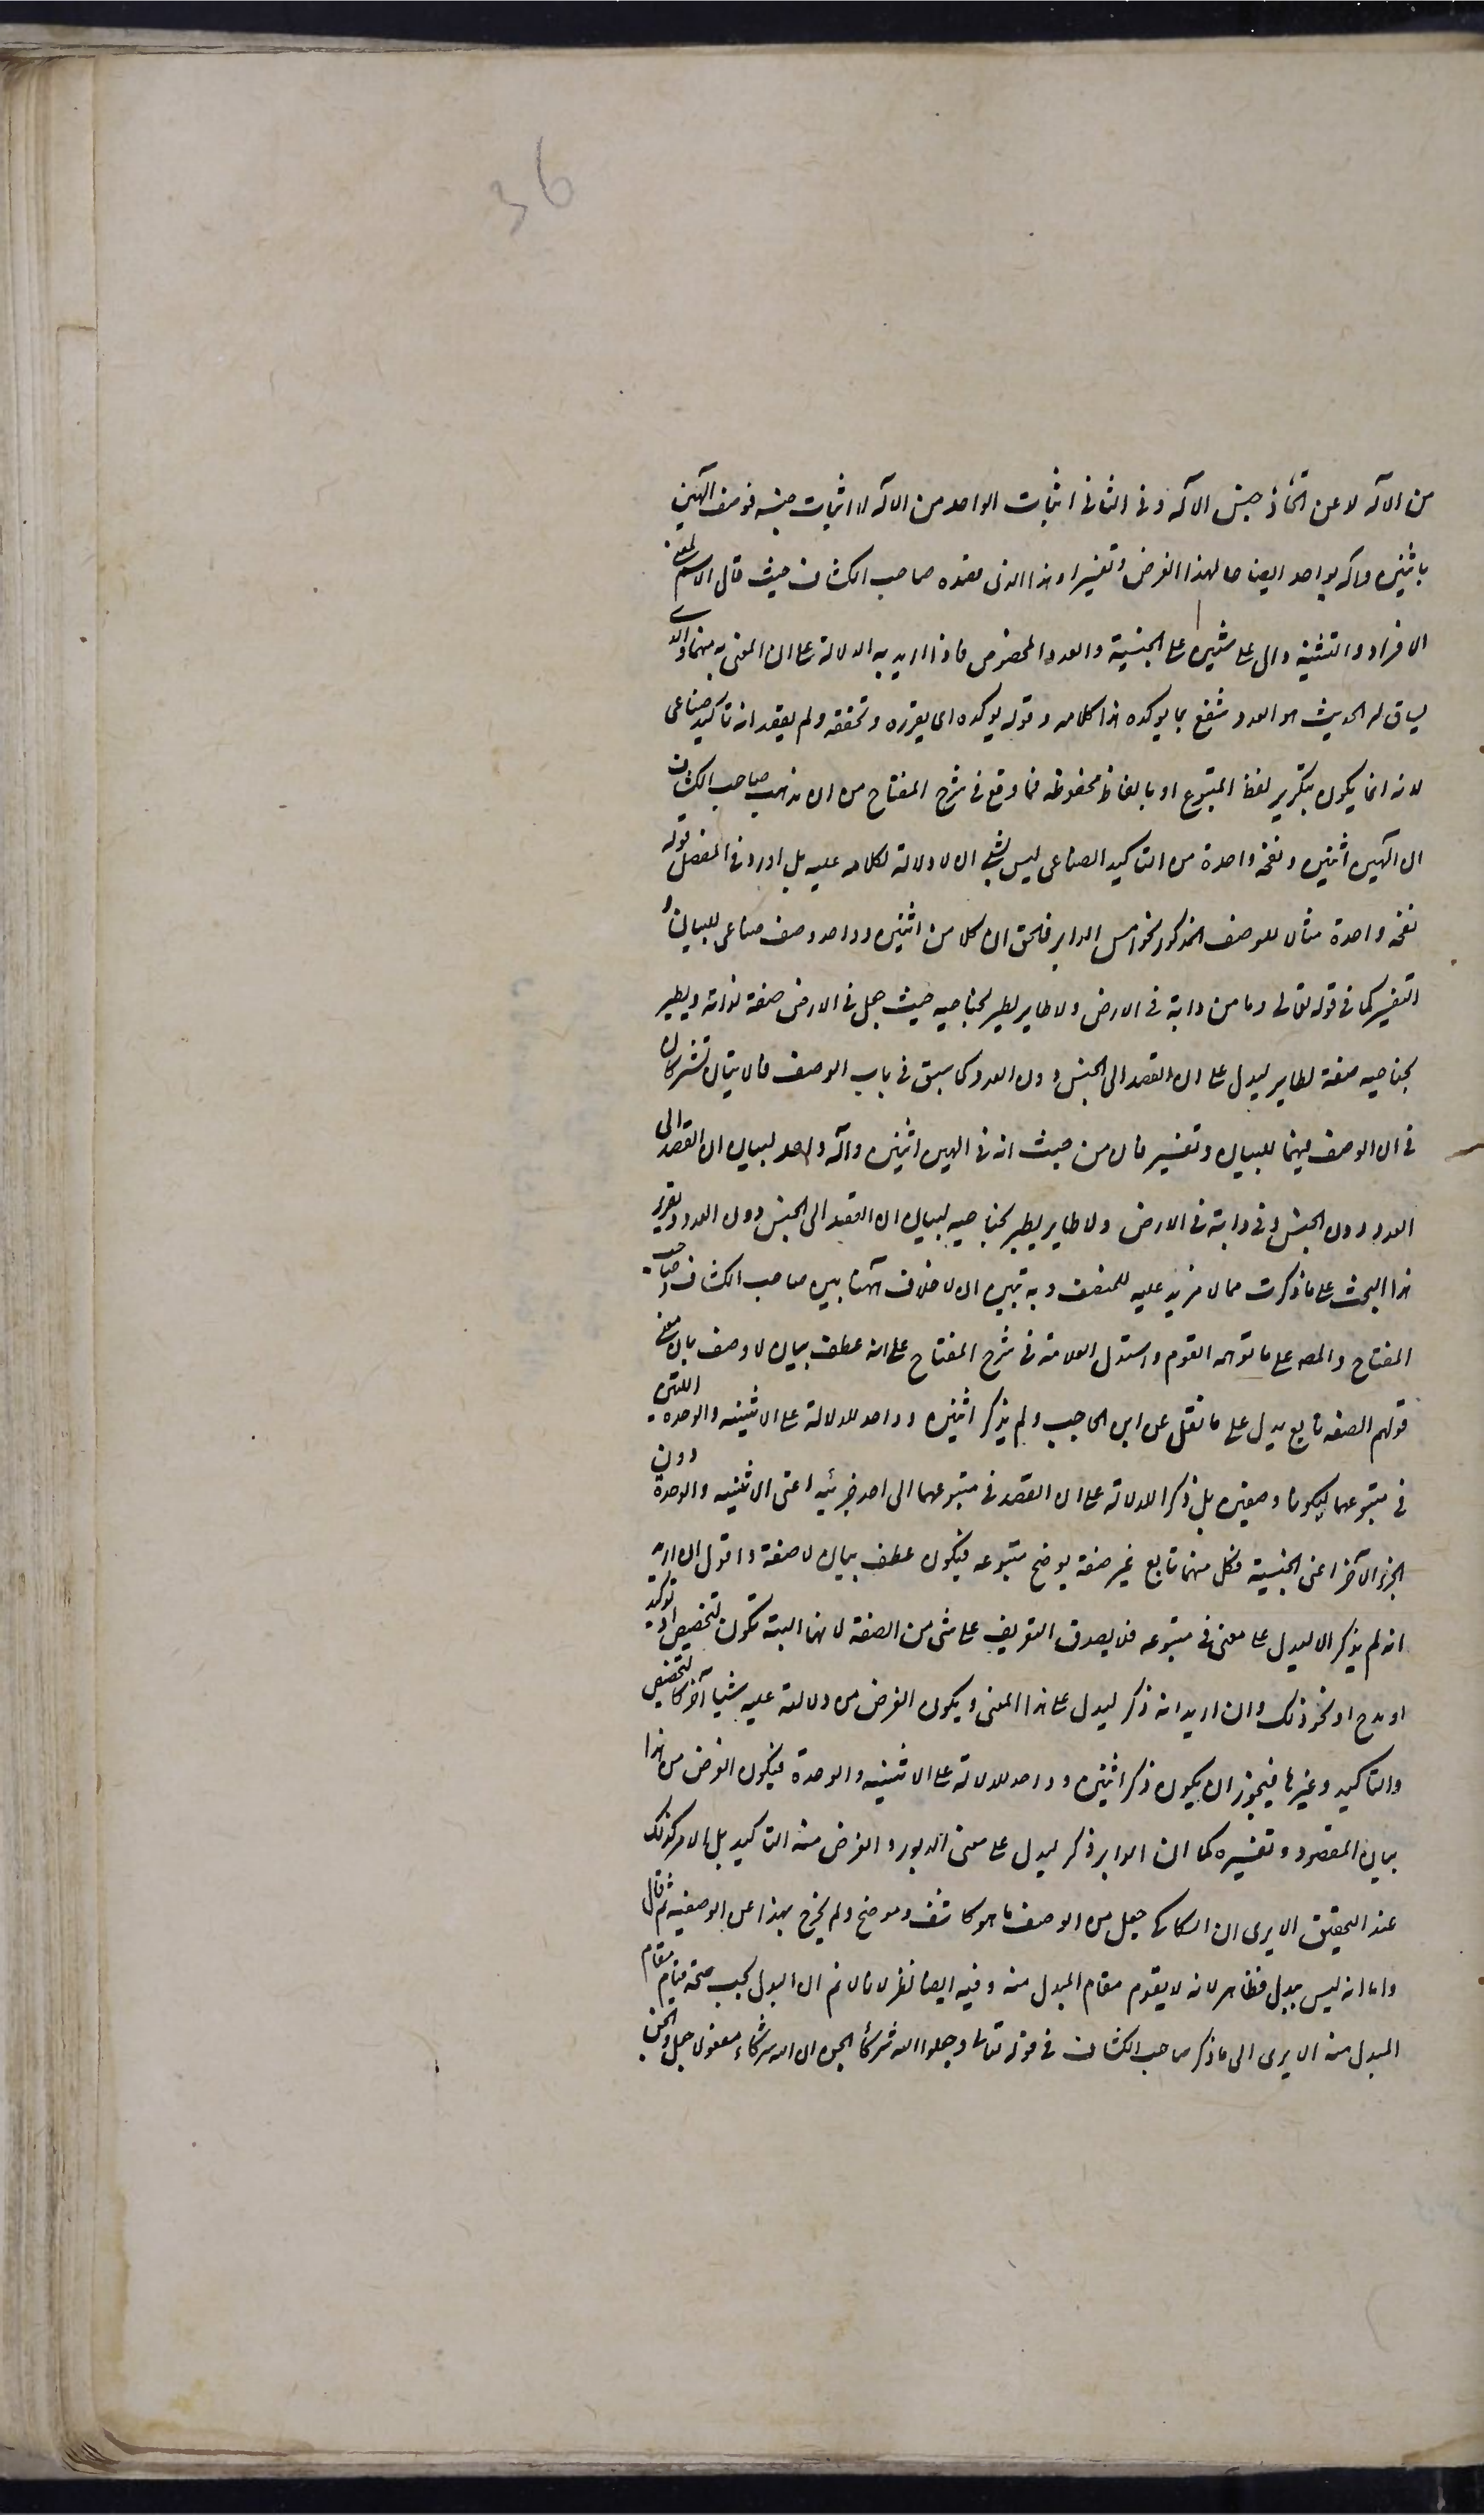 36
من الآله لا عن اتخاذ جنس الآله و فى الثانى اثبات الواحد من الآله لا اثبات جنسه فوصف آلهين
باثنين و آله بواحد ايضاحا لهذا الغرض و تفسيرا و هذا الذى قصده صاحب الكشاف حيث قال الاسم لمعنى
الافراد و التثنية دال على شيئين على الجنسية و العدد المخصوص فاذا اريد به الدلالة على ان المعنى به منهما و الذى
يساق له الحديث هو العدد شفع بما يوكده هذا كلامه و قوله يوكده اى يقرره و يحققه و لم يقصد انه تاكيد صناعى
لانه انما يكون بتكرير لفظ المتبوع او بالفاظ محفوظه فما وقع فى شرح المفتاح من ان مذهب صاحب الكشاف
ان آلهين اثنين و نفخة واحدة من التاكيد الصناعى ليس بشى اذ لا دلالة لكلامه عليه بل اورد فى المفصل قوله
نفخه واحدة مثالا للوصف المذكور نحو امس الدابر فالحق ان كلا من اثنين و واحد وصف صناعى للبيان و
التفسير كما فى قوله تعالى و ما من دابة فى الارض و لا طاير يطير بجناحيه حيث جعل فى الارض صفة لدابة و يطير
بجناحيه صفة لطاير ليدل على ان القصد الى الجنس دون العدد كما سبق فى باب الوصف فالآيتان تشتركان
فى ان الوصف فيهما للبيان و تفترقان من حيث انه فى الهين اثنين و آله واحد لبيان ان القصد الى
العدد دون الجنس و فى دابة فى الارض و لا طاير يطير بجناحيه لبيان ان القصد الى الجنس دون العدد و تقرير
هذا البحث على ما ذكرت مما لا مزيد عليه للمنصف و به تبين ان لا خلاف ههنا بين صاحب الكشاف و صاحب
المفتاح و المصه على ما توهمه القوم و استدل العلامة فى شرح المفتاح على انه عطف بيان لا وصف بان معنى
قولهم الصفه تابع يدل على ما نقل عن ابن الحاجب و لم يذكر اثنين و واحد للدلالة على الاثنينيه و الوحده اللتين
فى متبوعهما ليكونا وصفين بل ذكرا للدلالة على ان القصد فى متبوعهما الى احد جزئيه اعنى الاثنينيه و الوحدة دون
الجزء الآخر اعنى الجنسية فكل منهما تابع غير صفة يوضح متبوعه فيكون عطف بيان لا صفة و اقول ان اريد
انه لم يذكر الا ليدل على معنى فى متبوعه فلا يصدق التعريف على شى من الصفة لانها البتة تكون لتخصيص او توكيد
او مدح او نحو ذلك و ان اريد انه ذكر ليدل على هذا المعنى و يكون الغرض من دلالته عليه شيئا آخر كالتخصيص
و التاكيد و غيرها فيجوز ان يكون ذكر اثنين و واحد للدلالة على الاثنينيه و الوحدة فيكون الغرض من هذا
بيان المقصود و تفسيره كما ان الدابر ذكر ليدل على معنى الدبور و الغرض منه التاكيد بل الامر كذلك
عند التحقيق الا يرى ان السكاكى جعل من الوصف ما هو كاشف و موضح و لم يخرج بهذا عن الوصفيه ثم قال
و اما انه ليس ببدل فظاهر لانه لا يقوم مقام المبدل منه و فيه ايضا نظر لانا لا نم ان البدل يجب صحة قيام مقام
المبدل منه الا يرى الى ما ذكر صاحب الكشاف فى قوله تعالى و جعلوا الله شركاء الجن ان الله شركاء مفعولا جعل و الجن